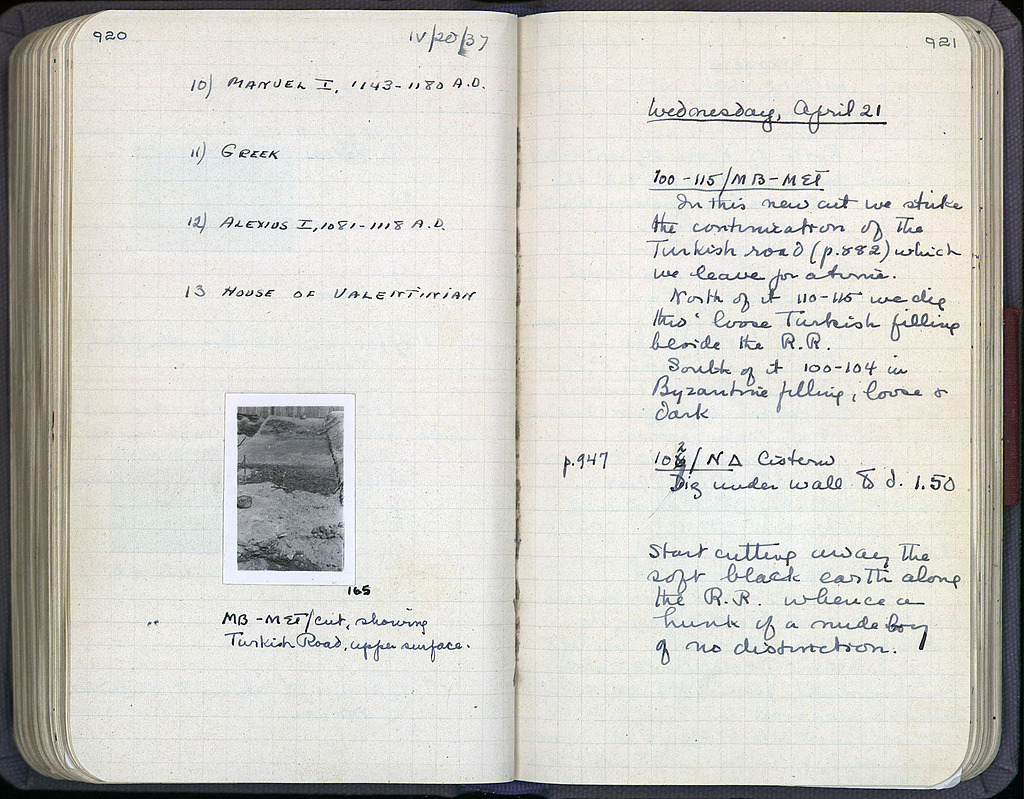 920
IV/20/37
10) MANUEL I, 1143-1180 A.D.
11) GREEK
12) ALEXIUS I, 1081-1118 A.D.
13 HOUSE OF VALENTINIAN
165
MB-MET/cut, showing
Turkish Road, upper surface.
921
Wednesday, April 21
100-115/MB-MET
In this new cut we strike
the continuation of the
Turkish road (p.882) which
we leave for a time.
North of it 110-115 we dig
thro' loose Turkish filling
beside the R.R.
South of it 100-104 in
Byzantine filling, loose &
dark
p.947
102/NΔ Cistern
Dig under wall to d. 1.50
Start cutting away the
soft black earth along
the R.R. whence a
hunk of a nude boy
of no distinction.